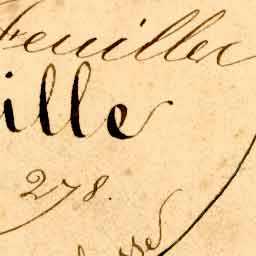 Feuillex
ille
278.